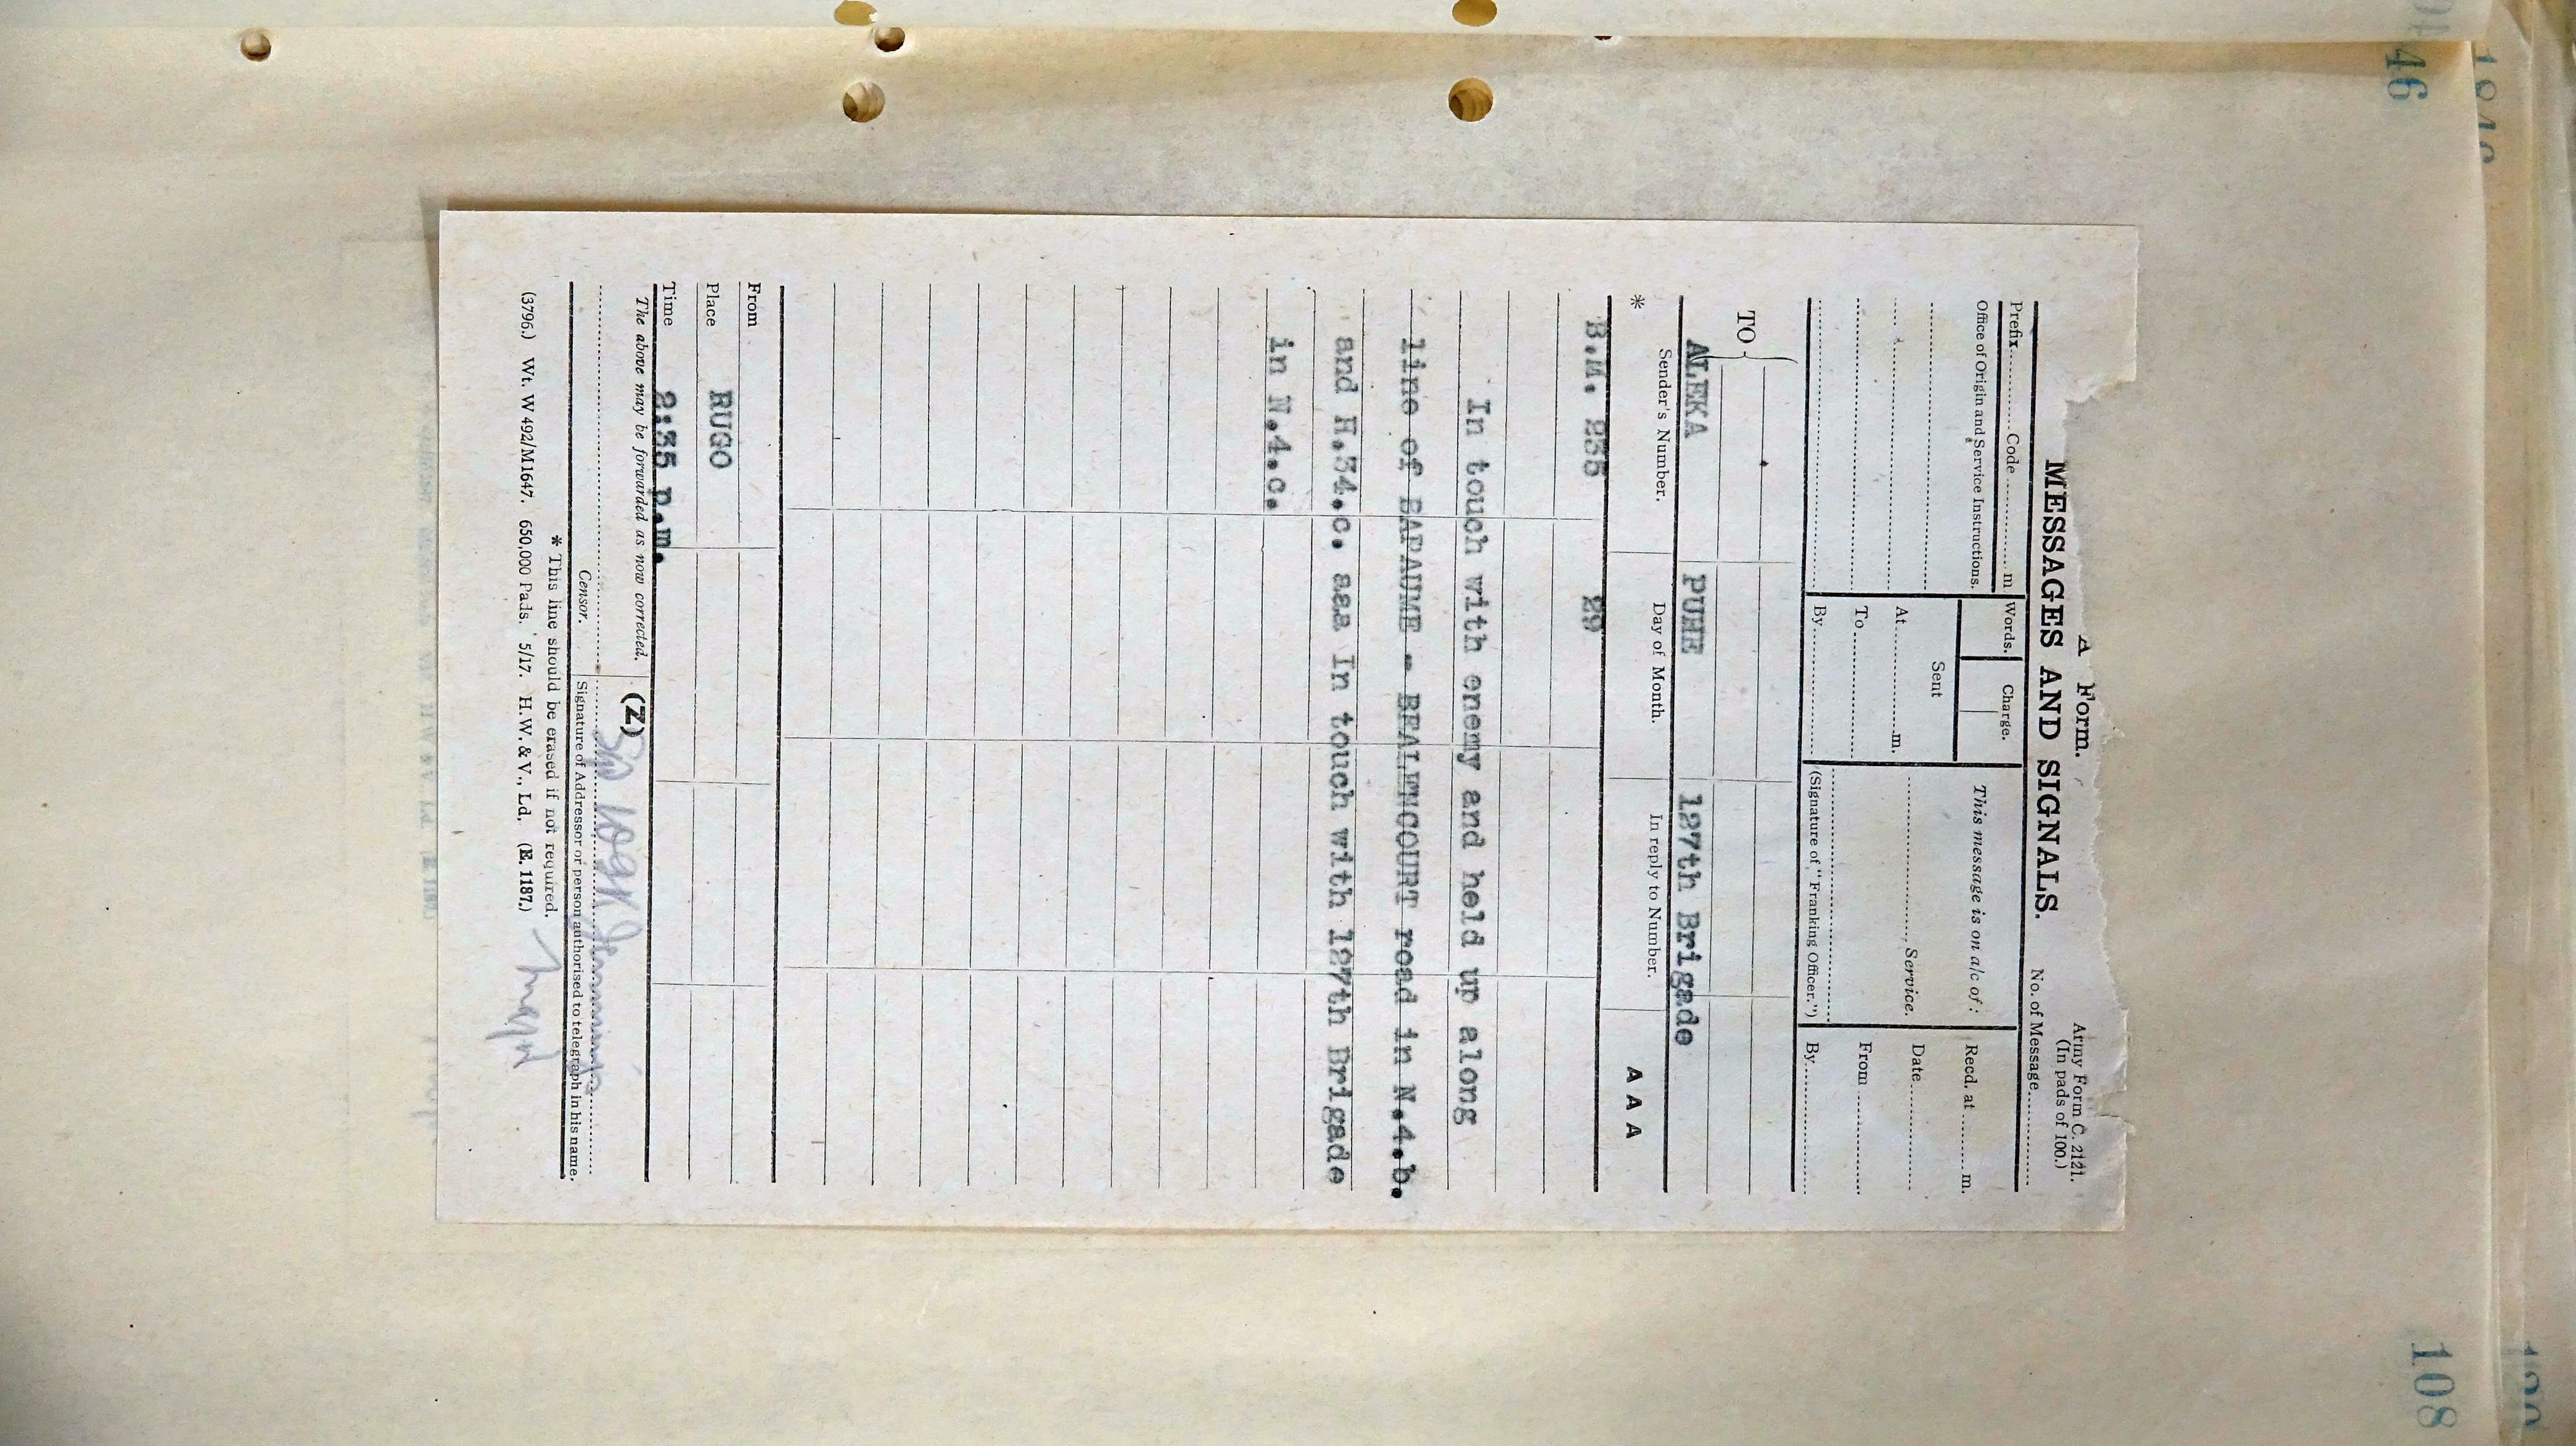 46
108
A Form.
Army Form C. 2121.
(In pads of 100.)
MESSAGES AND SIGNALS.
No. of Message
Prefix Code m
Words.
Charge.
Office of Origin and Service Instructions.
Sent
At m.
To
By
This message is on a/c of:
Service.
(Signature of "Franking Officer.")
Recd. at m.
Date
From
By
TO
ALEKA PUHE 127th Brigade
* Sender's Number. Day of Month. In reply to Number. A A A
B.M. 235 29
In touch with enemy and held up along
line of BAPAUME - BEAULENCOURT road in N.4.b.
and H.34.c. aaa In touch with 127th Brigade
in N.4.c.
From
Place RUGO
Time 2:35 p.m.
The above may be forwarded as now corrected. (Z)
Censor. Signature of Addressor or person authorised to telegraph in his name.
* This line should be erased if not required.
(3796.) Wt. W 492/M1647. 650,000 Pads. 5/17. H.W. & V., Ld. (E. 1187.)
Major